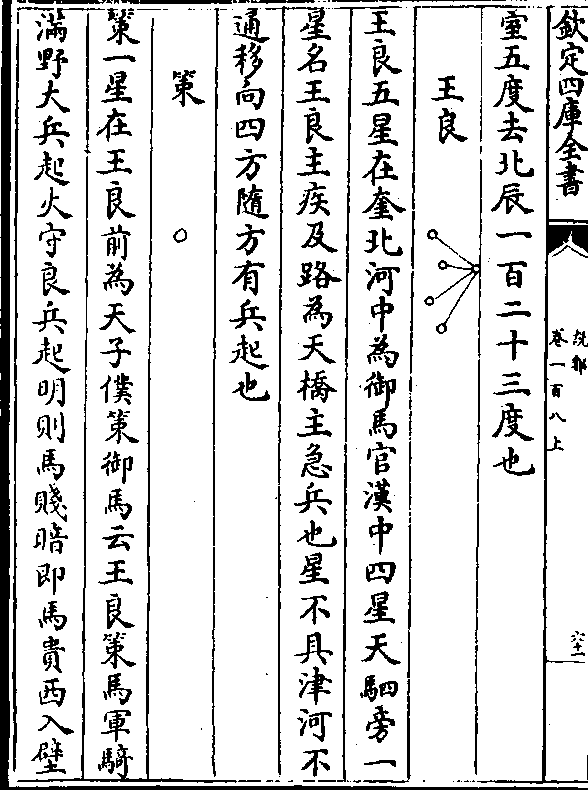 欽定四庫全書
說郛
卷一百八上
六十一
室五度去北辰一百二十三度也
王良
王良五星在奎北河中為御馬官漢中四星天駟旁一
星名王良主疾及路為天橋主急兵也星不具津河不
通移向四方隨方有兵起也
策
策一星在王良前為天子僕策御馬云王良策馬軍騎
滿野大兵起火守良兵起明則馬賤暗即馬貴西入壁